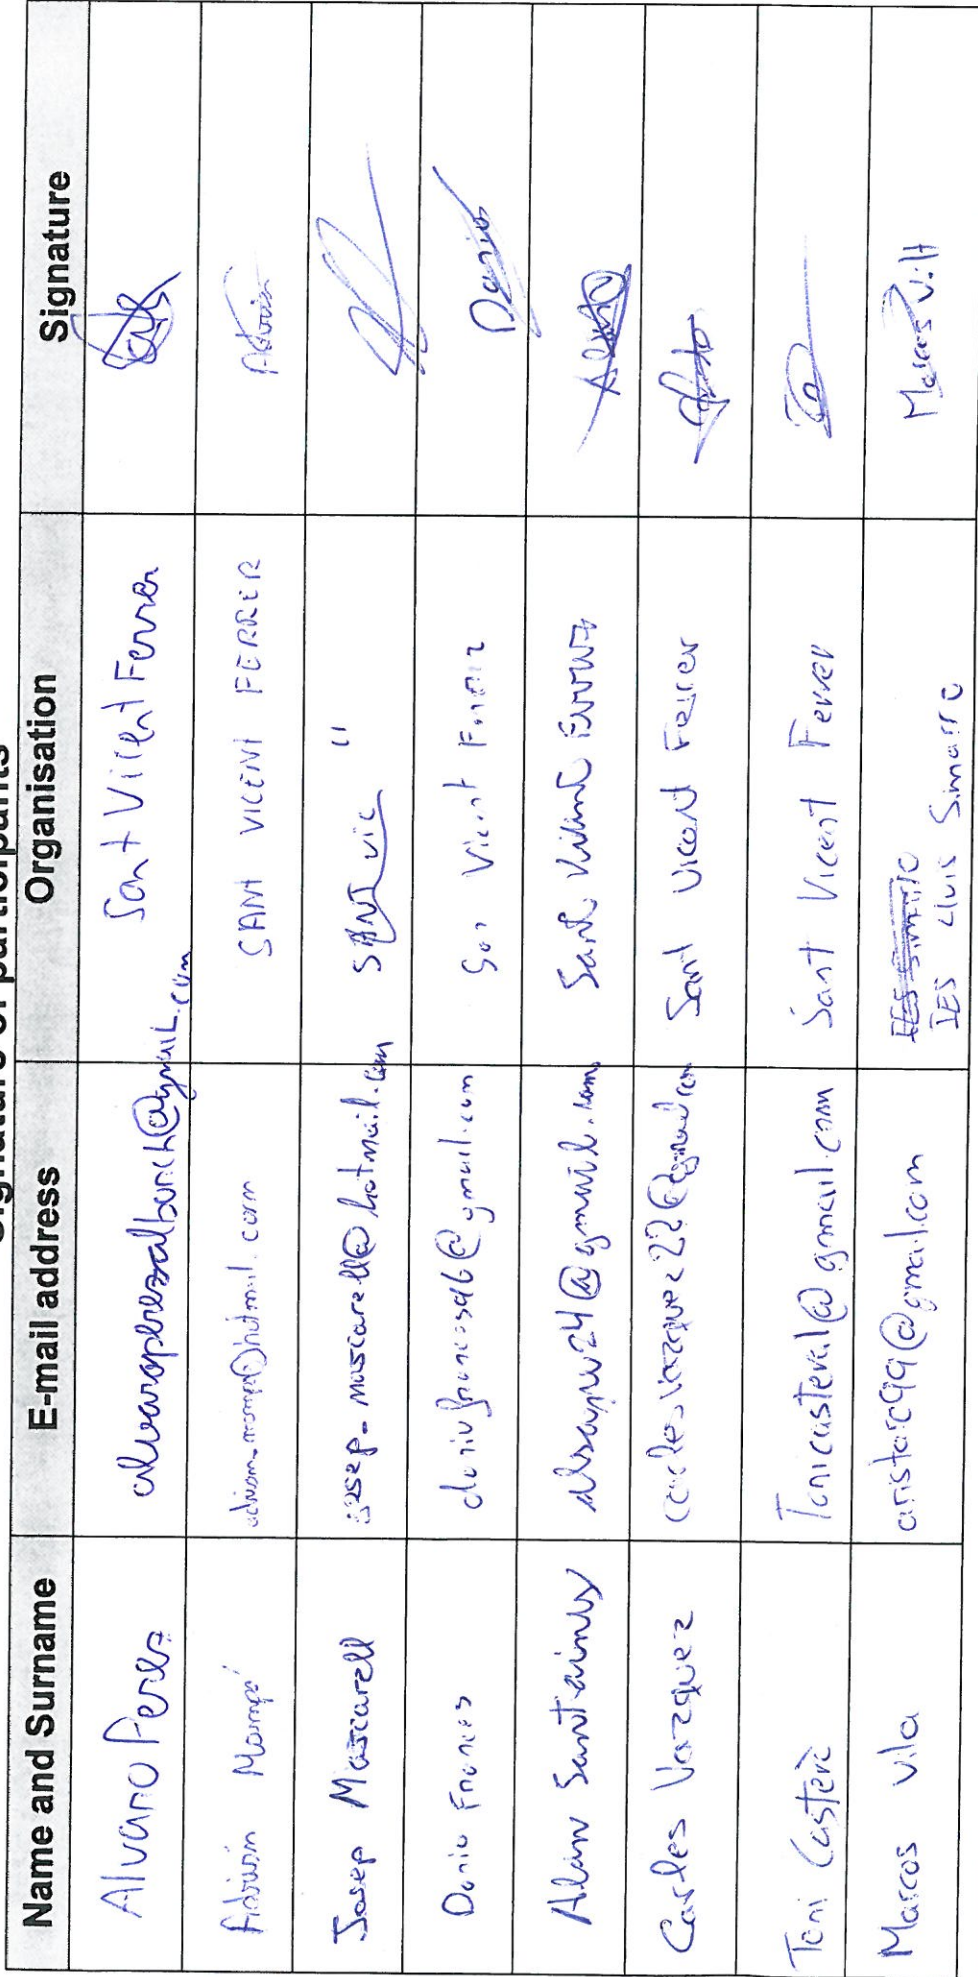 Signature of participants
Name and Surname E-mail address Organisation Signature
Alvaro Perez alvaroperezalborch@gmail.com Sant Vicent Ferrer
Adrián Mompó adrian_mompo@hotmail.com SANT VICENT FERRER Adrián
Josep Mascarell josep-mascarell@hotmail.com SANT Vic "
Dario Frances dariofrances96@gmail.com San Vicent Ferrer Dario
Alan Sant Vicent Ferrer
Carles Vazquez carlesvazquez22@gmail.com Sant Vicent Ferrer
Toni Casterà Tonicastera1@gmail.com Sant Vicent Ferrer
Marcos Vila aristarc99@gmail.com IES Simarro Marcos Vila
IES Lluís Simarro